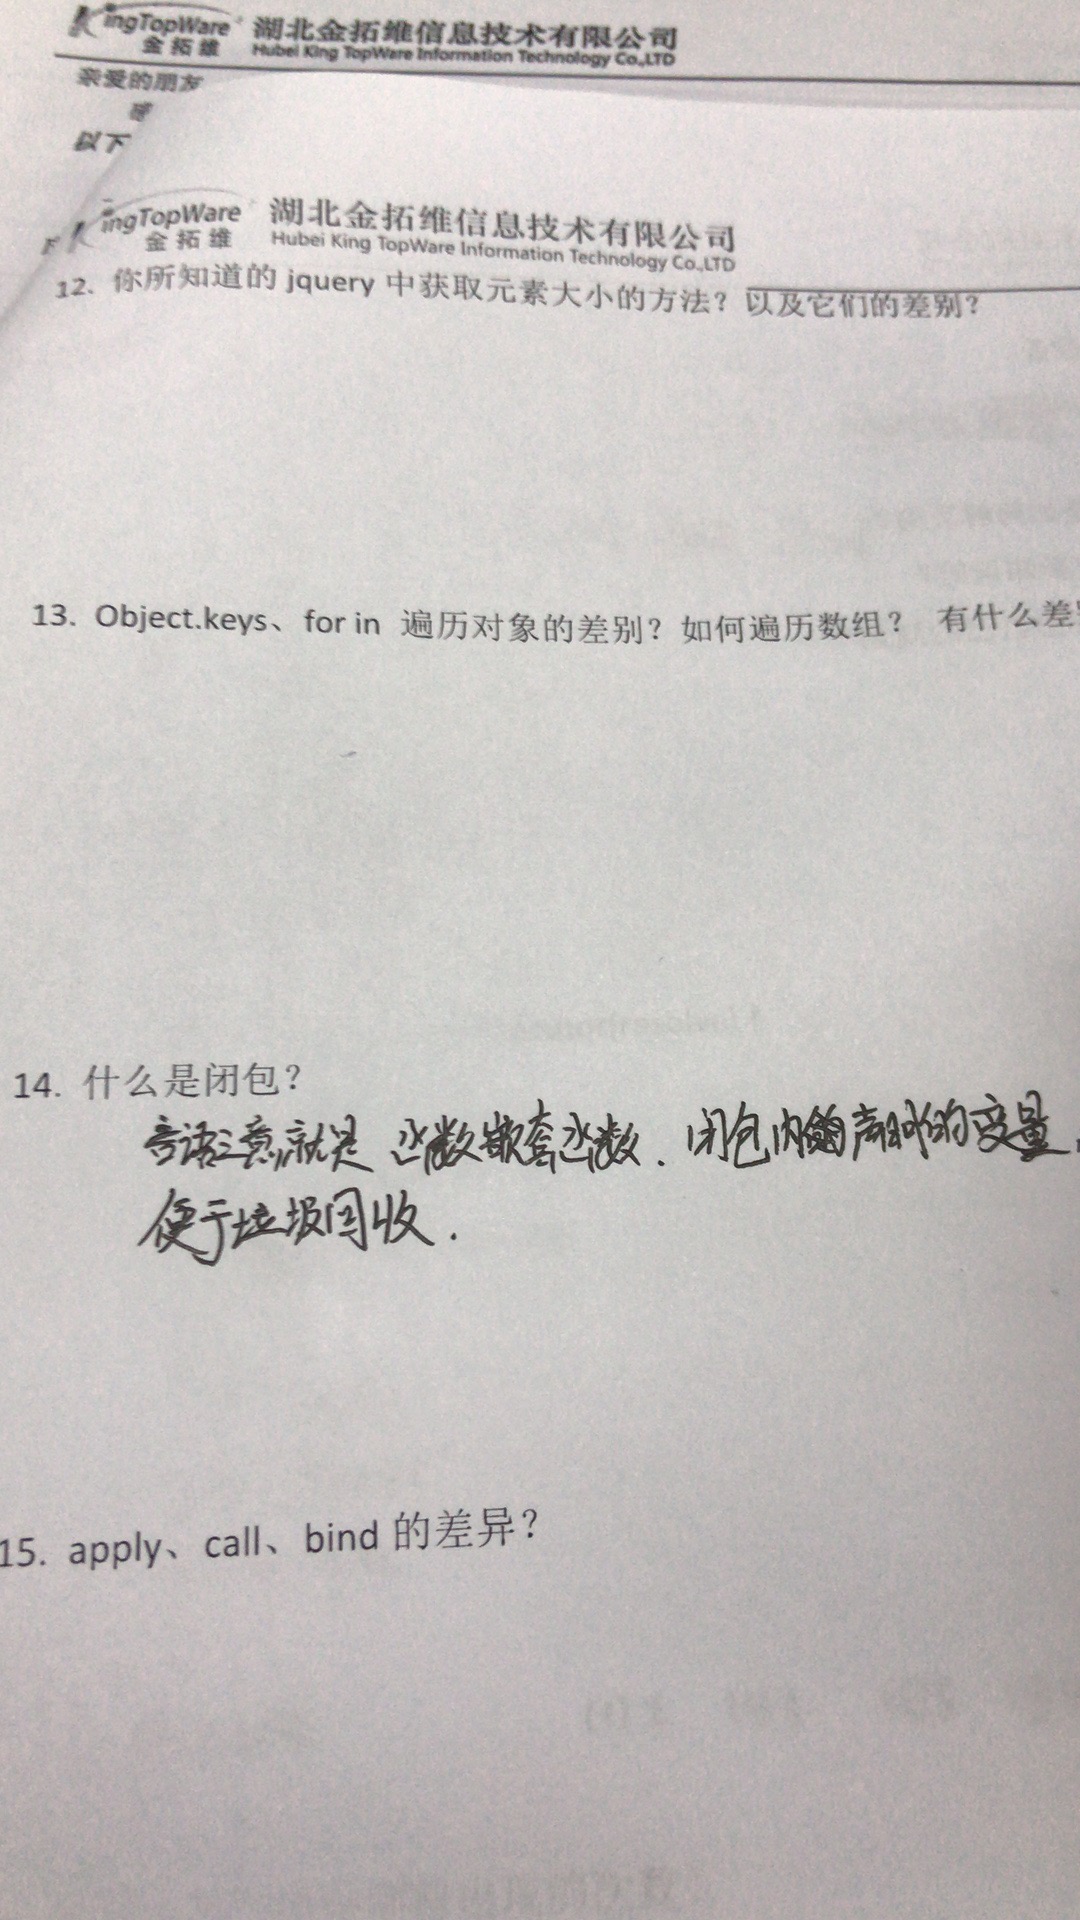 KingTopWare 湖北金拓维信息技术有限公司
金拓维 Hubei King TopWare Information Technology Co.,LTD
亲爱的朋友
以下
KingTopWare 湖北金拓维信息技术有限公司
金拓维 Hubei King TopWare Information Technology Co.,LTD
12. 你所知道的 jquery 中获取元素大小的方法？以及它们的差别？
13. Object.keys、for in 遍历对象的差别？如何遍历数组？ 有什么差
14. 什么是闭包？
言语之意就是 函数嵌套函数. 闭包内声明的变量
便于垃圾回收.
15. apply、call、bind 的差异？